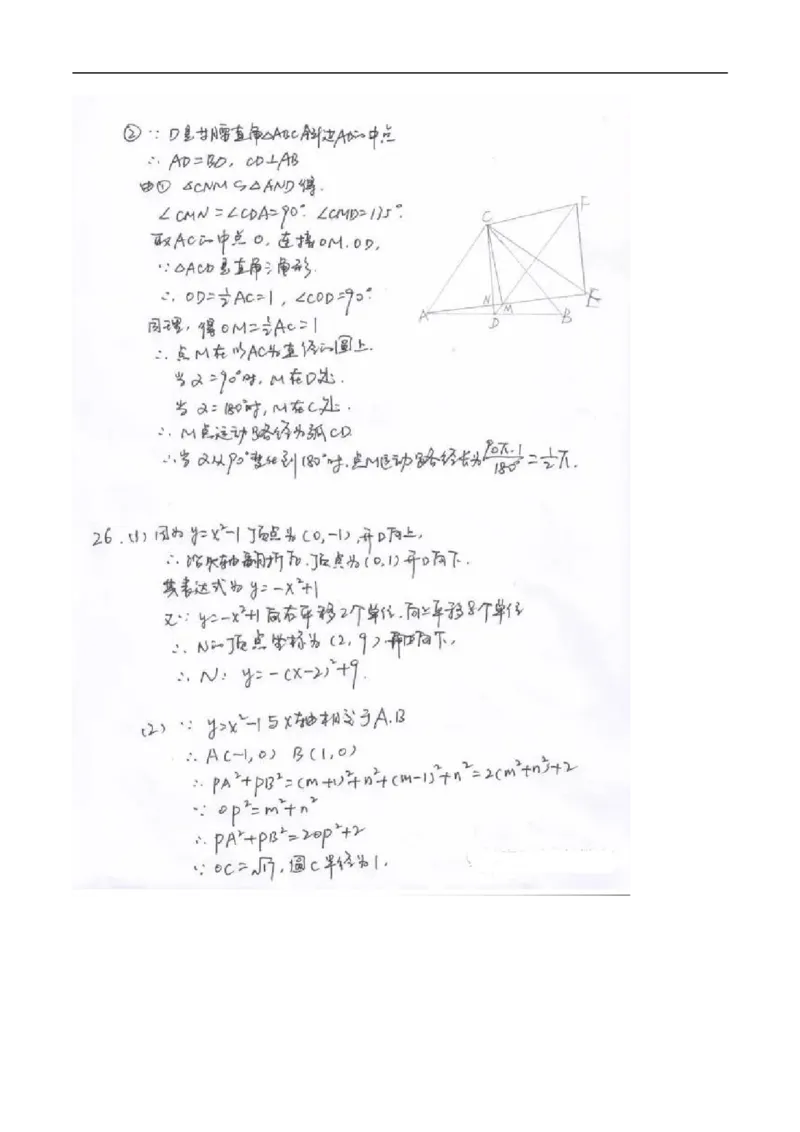 ② ∵ D是等腰直角△ABC斜边AB的中点
∴ AD=BD, CD⊥AB
由① △CNM∽△AND得.
∠CMN=∠CDA=90°. ∠CMD=135°.
取AC的中点O, 连接OM, OD,
∵△ACD是直角三角形.
∴ OD=½AC=1, ∠COD=90°.
同理, 得OM=½AC=1
∴ 点M在以AC为直径的圆上.
当α=90°时, M在D处.
当α=180°时, M在C处.
∴ M点运动路径为弧CD
∴当α从90°变化到180°时, 点M运动路径长为90π·1/180° = ½π.
C
F
N
M
E
A
D
B
26. (1) 因为y=x²-1顶点为(0,-1), 开口向上,
∴ 沿x轴翻折后, 顶点为(0,1)开口向下.
其表达式为y=-x²+1
又∵ y=-x²+1向右平移2个单位, 向上平移8个单位
∴ N的顶点坐标为(2,9), 开口向下,
∴ N: y=-(x-2)²+9.
(2) ∵ y=x²-1与x轴相交于A.B
∴ A(-1,0) B(1,0)
∴ PA²+PB²=(m+1)²+n²+(m-1)²+n²=2(m²+n²)+2
∵ OP²=m²+n²
∴ PA²+PB²=2OP²+2
∵ OC=√17, 圆C半径为1.